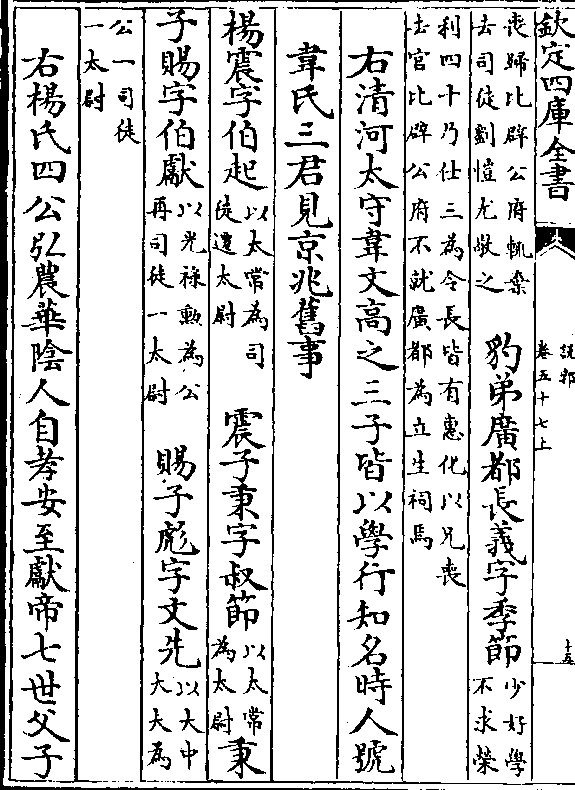 欽定四庫全書
說郛
卷五十七上
十五
喪歸比辟公府輒棄
去司徒劉愷尤敬之
豹弟廣都長義字季節
少好學
不求榮
利四十乃仕三為令長皆有惠化以兄喪
去官比辟公府不就廣都為立生祠焉
右清河太守韋文高之三子皆以學行知名時人號
韋氏三君見京兆舊事
楊震字伯起
以太常為司
徒遷太尉
震子秉字叔節
以太常
為太尉
秉
子賜字伯獻
以光祿勲為公
再司徒一太尉
賜子彪字文先
以大中
大夫為
公一司徒
一太尉
右楊氏四公弘農華陰人自孝安至獻帝七世父子